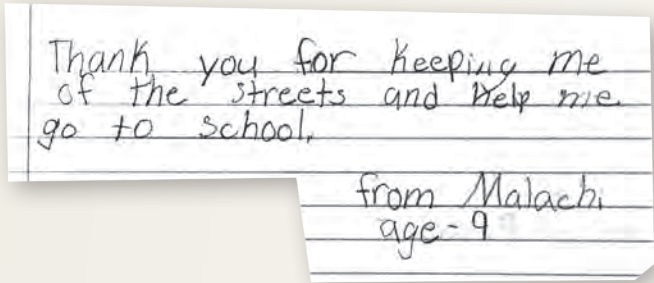 Thank you for keeping me
of the streets and help me
go to school.
from Malachi
age-9